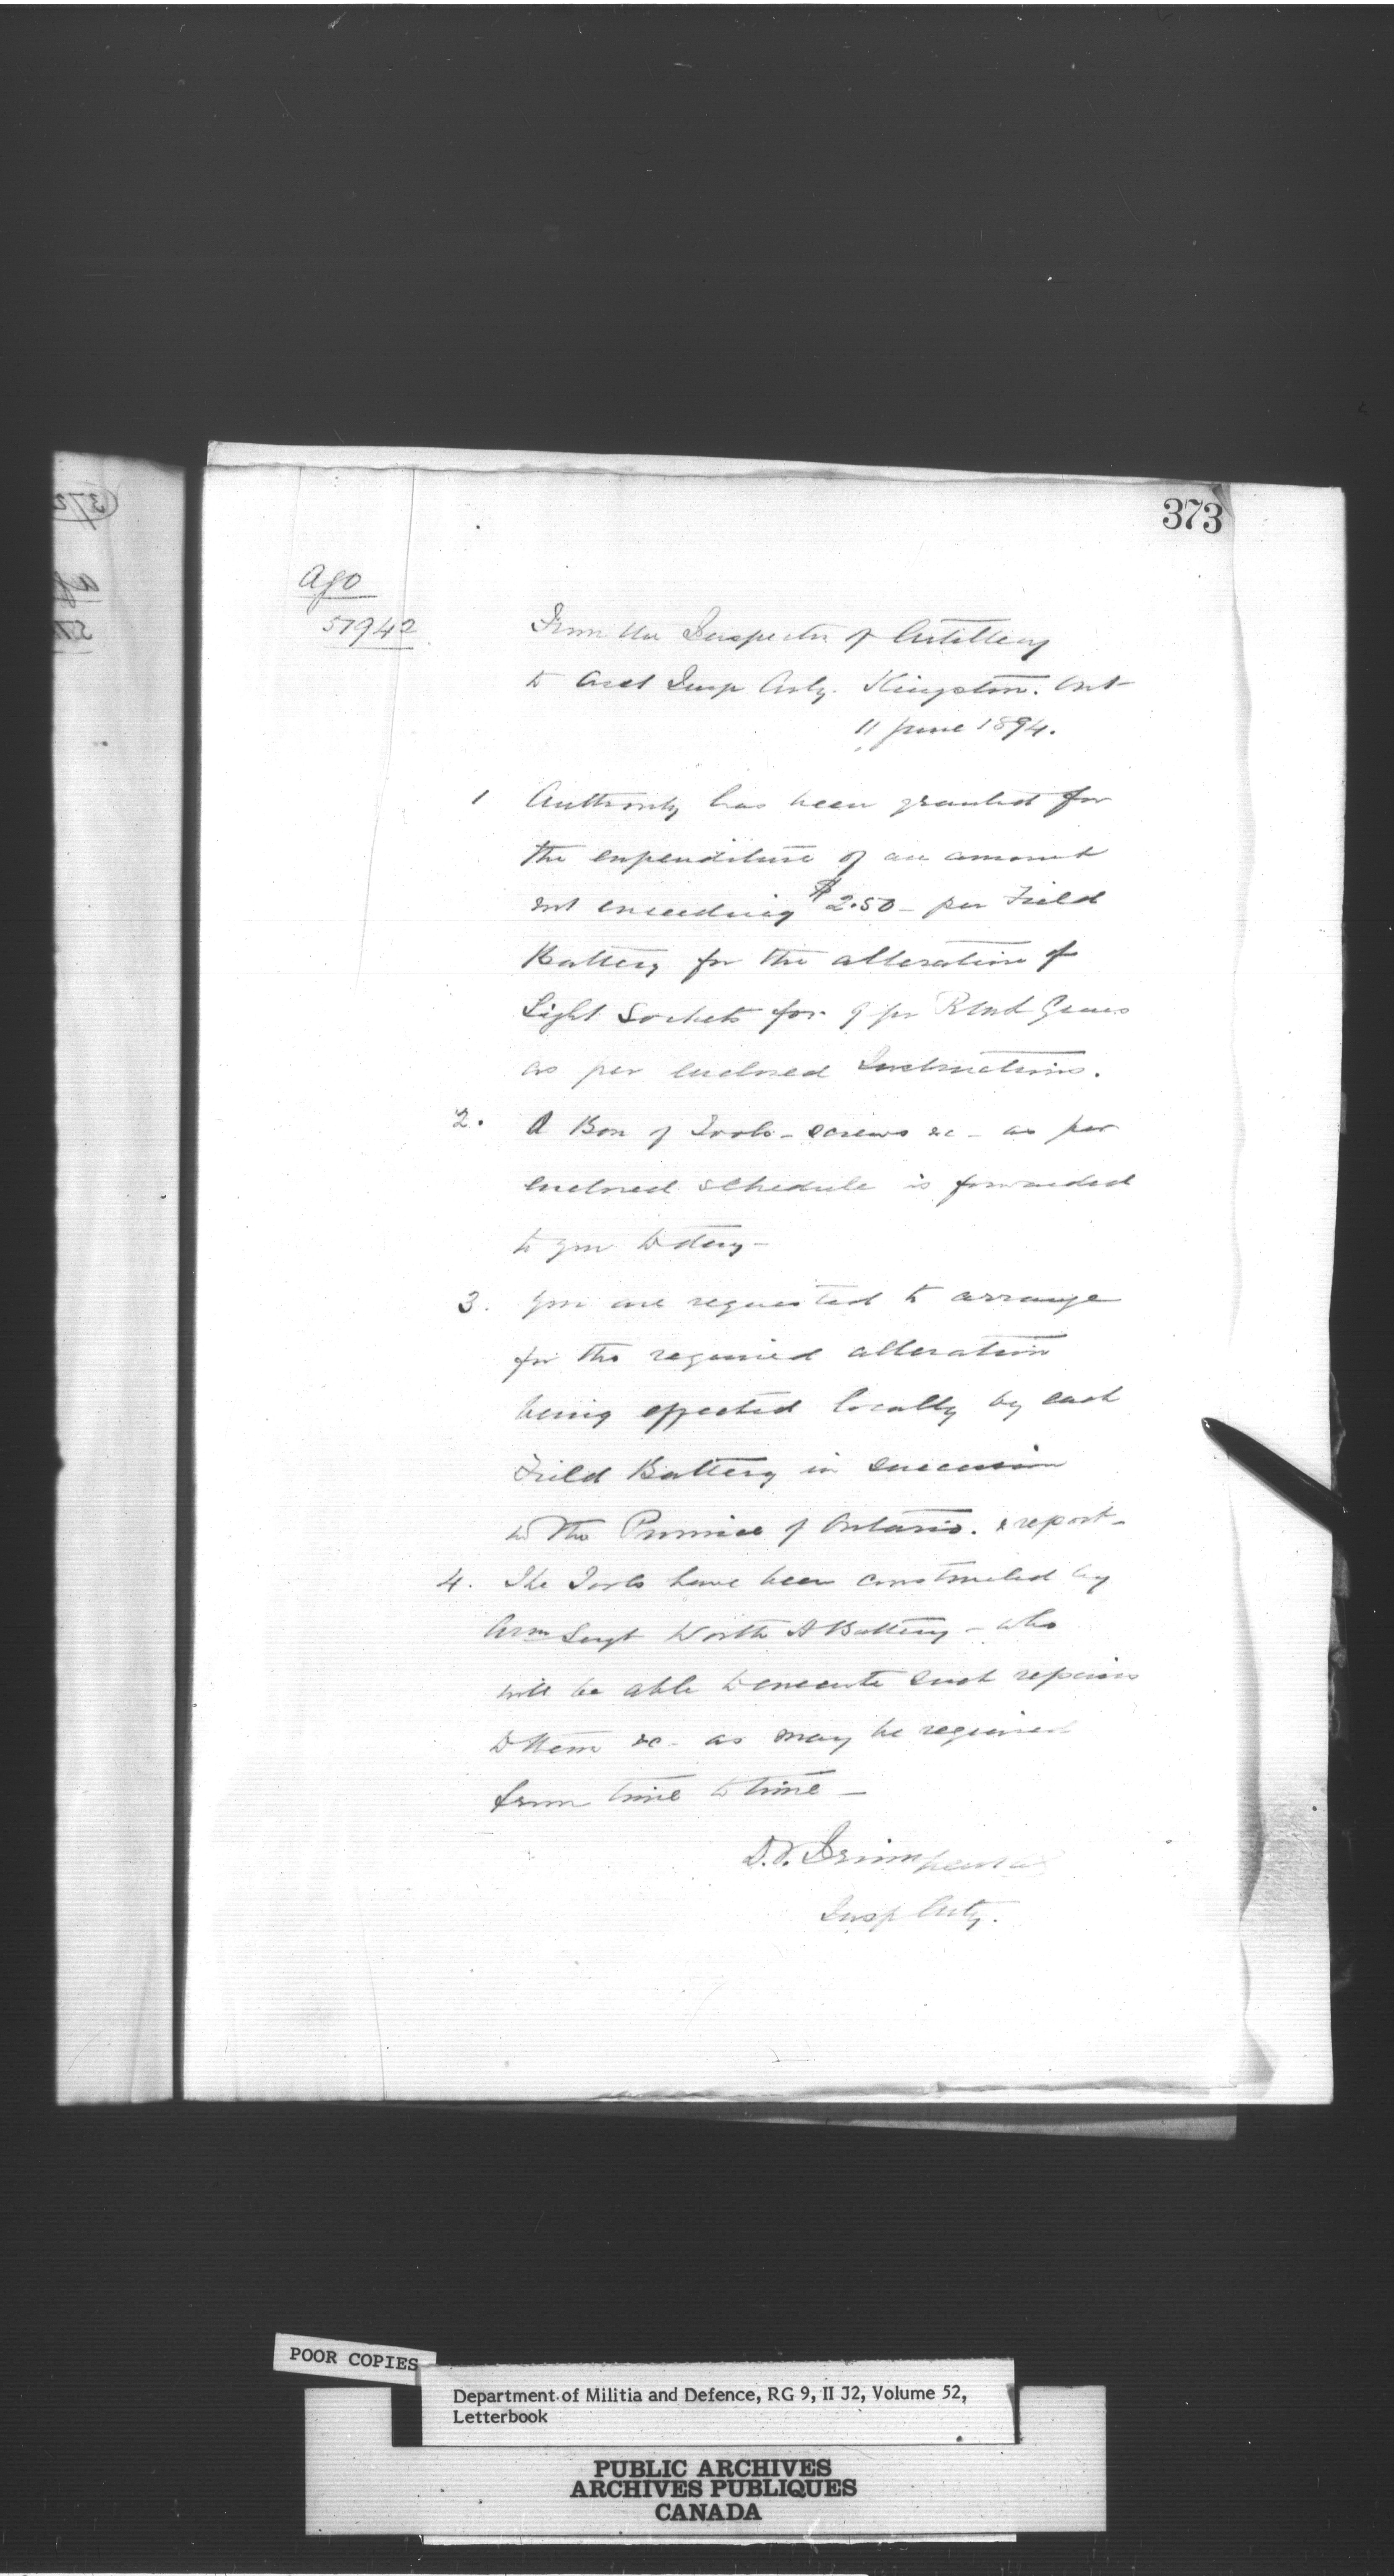 373
AGO
57942
From the Inspector of Artillery
to Asst Insp Arty. Kingston. Ont
11 June 1894.
1 Authority has been granted for
the expenditure of an amount
not exceeding $2.50 - per Field
Battery for the alteration of
Sight Sockets for 9 pr Guns
as per enclosed Instructions.
2. A Box of Tools - screws &c - as per
enclosed schedule is forwarded
to you today -
3. You are requested to arrange
for the required alteration
being effected locally by each
Field Battery in succession
in the Province of Ontario. & report -
4. The Tools have been constructed by
Arm Sergt Worth A Battery - who
will be able to execute such repairs
to them &c - as may be required
from time to time -
D.T. Irwin
Insp Arty.
POOR COPIES
Department of Militia and Defence, RG 9, II J2, Volume 52,
Letterbook
PUBLIC ARCHIVES
ARCHIVES PUBLIQUES
CANADA